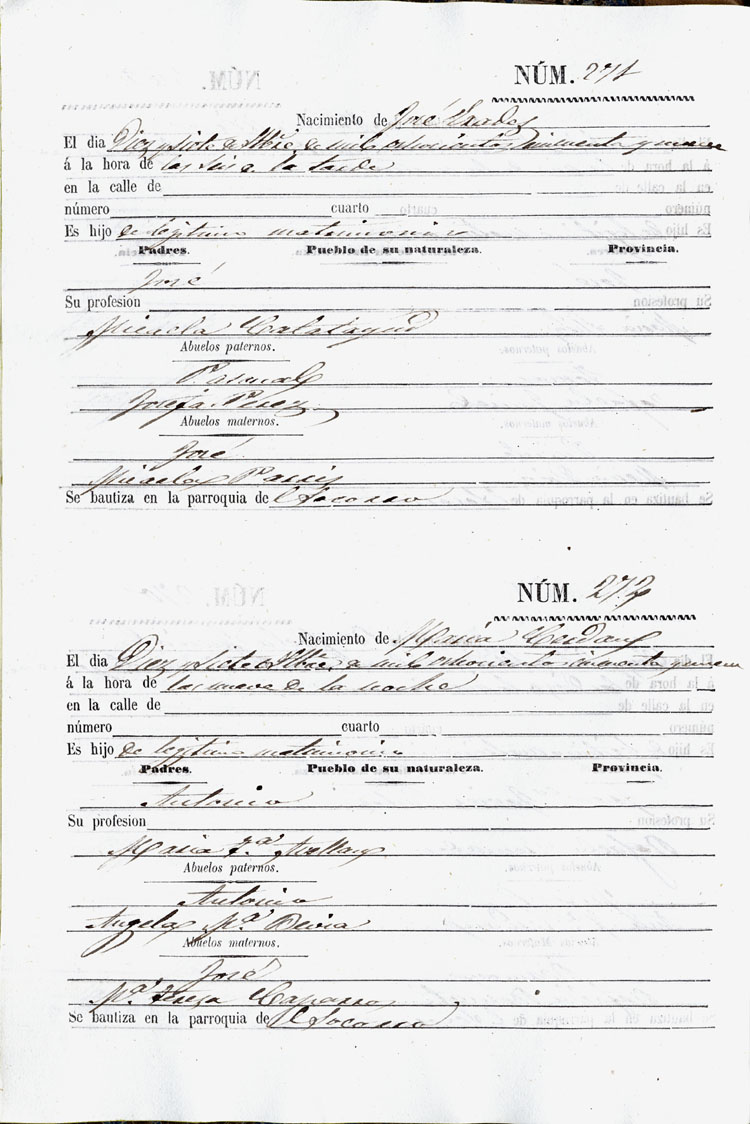 NÚM. 271
Nacimiento de José
El dia Diez y siete de Sbre. de mil ochocientos cincuenta y nueve
á la hora de las seis de la tarde
en la calle de
número cuarto
Es hijo de legitimo matrimonio
Padres. Pueblo de su naturaleza. Provincia.
José
Su profesion
Micaela Calatayud
Abuelos paternos.
Pascual
Josefa Perez
Abuelos maternos.
José
Micaela
Se bautiza en la parroquia de el Socorro
NÚM. 272
Nacimiento de Maria
El dia Diez y siete de Sbre. de mil ochocientos cincuenta y nueve
á la hora de las nueve de la noche
en la calle de
número cuarto
Es hijo de legitimo matrimonio
Padres. Pueblo de su naturaleza. Provincia.
Antonio
Su profesion
Maria
Abuelos paternos.
Antonio
Angela Mª
Abuelos maternos.
José
Mª Teresa Caparros
Se bautiza en la parroquia de el Socorro